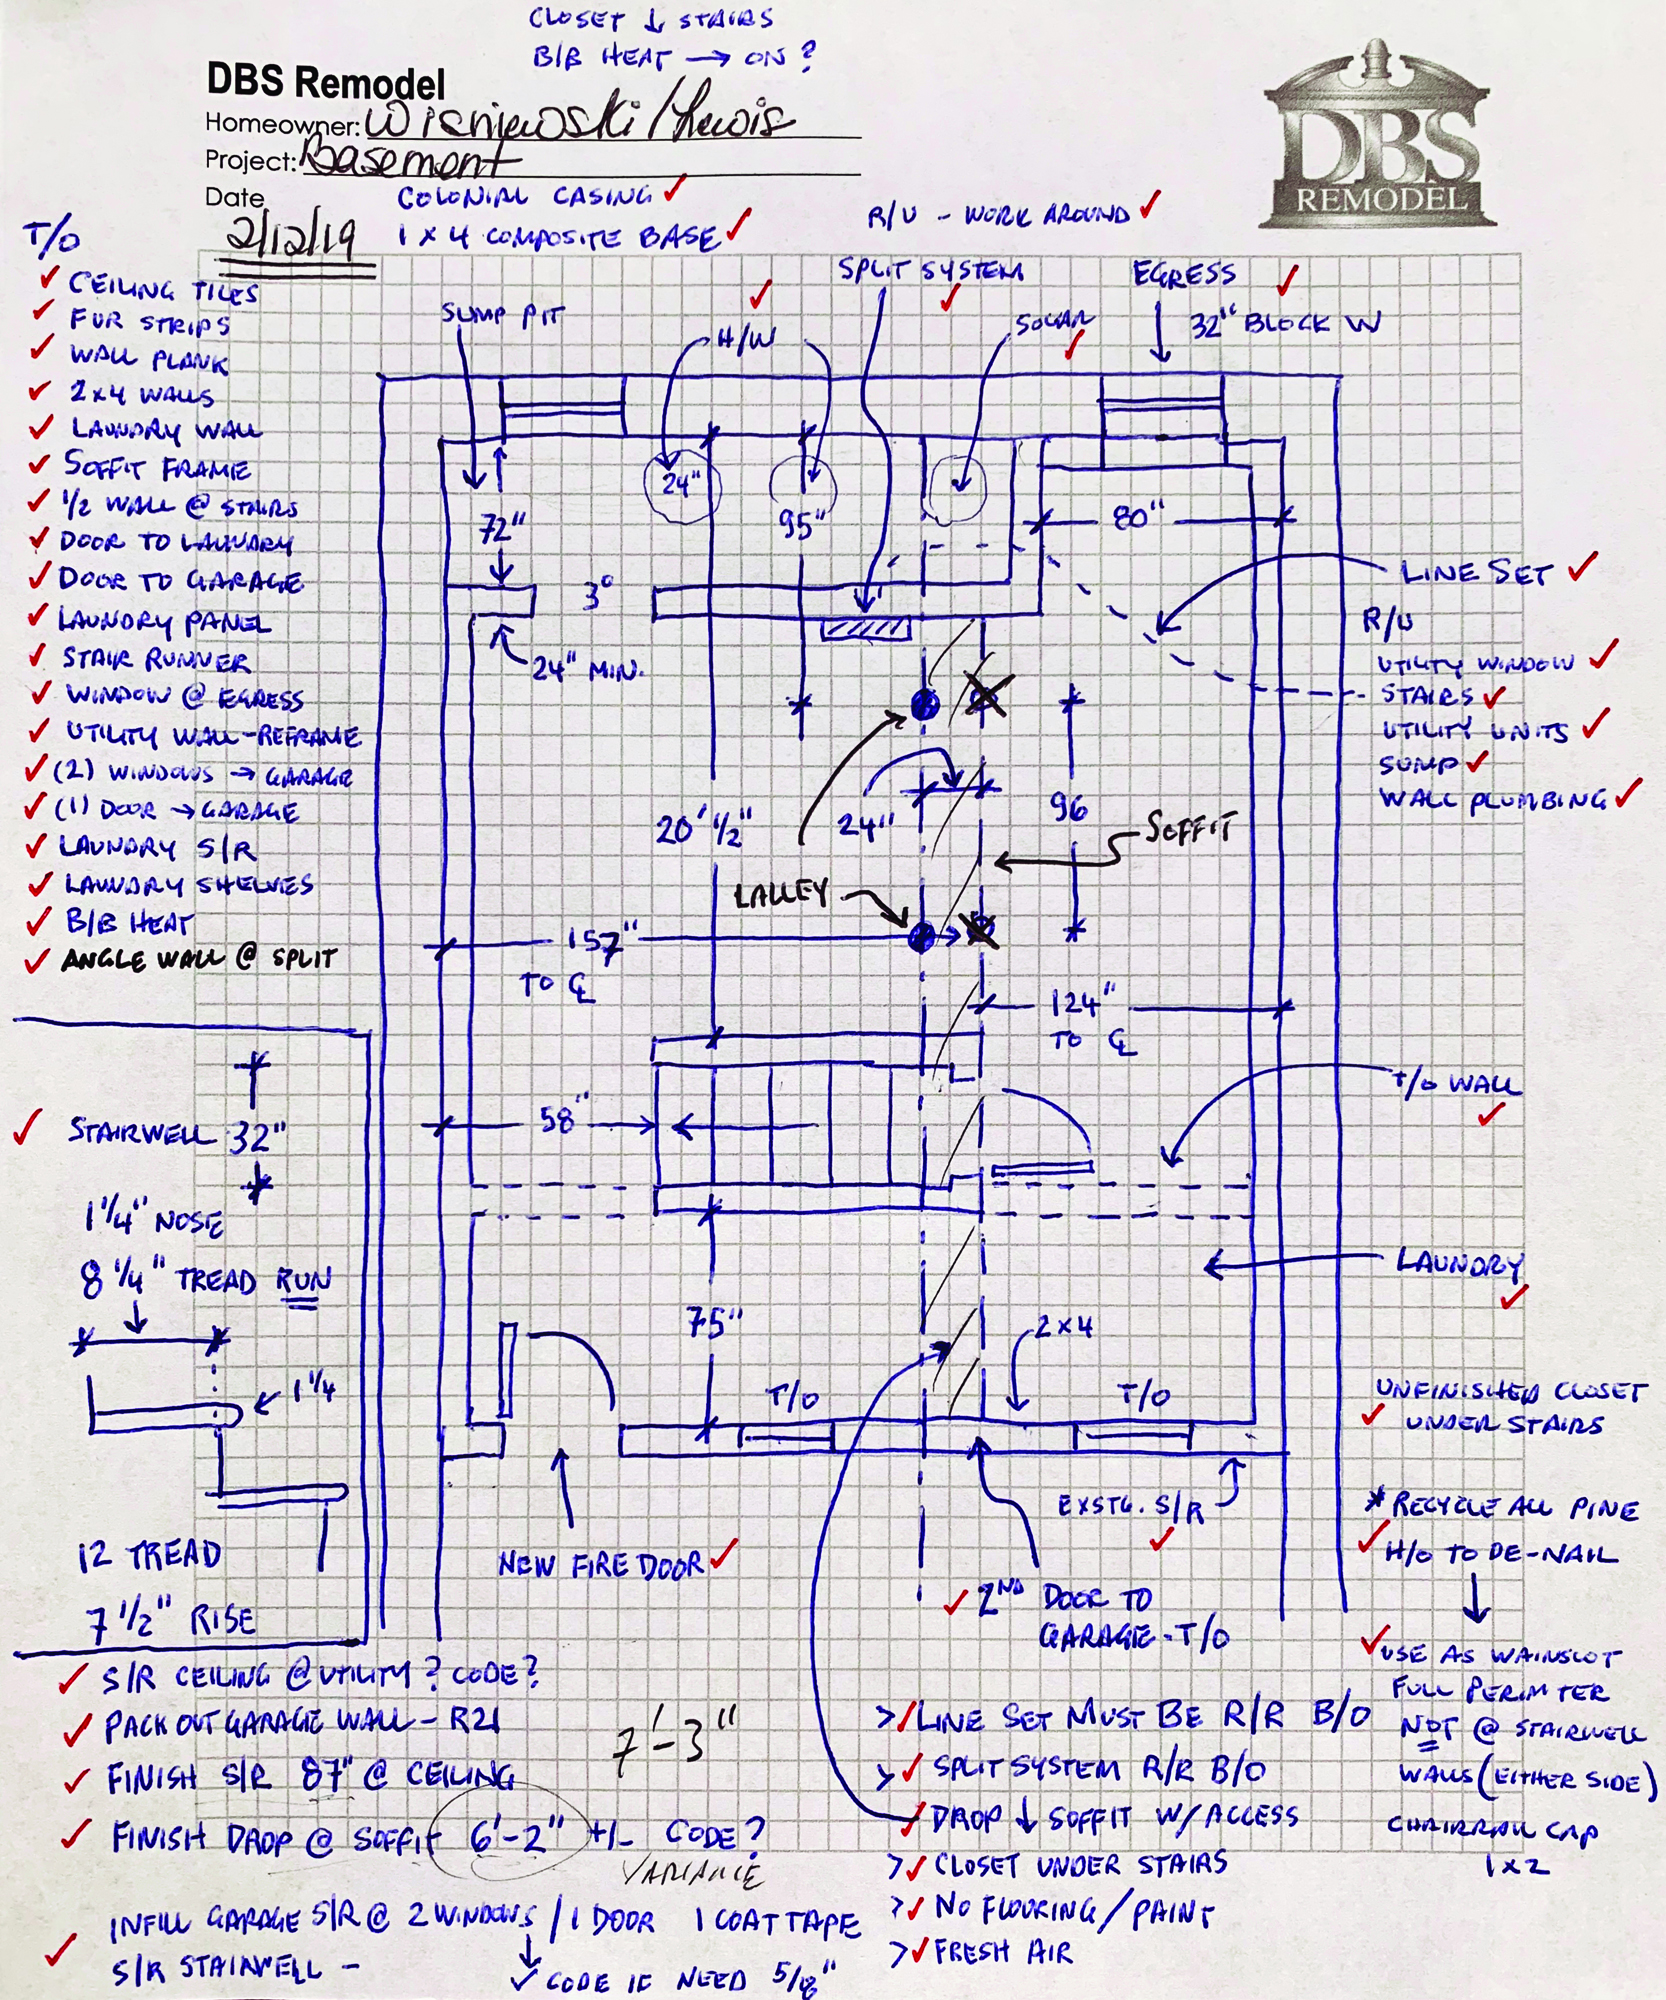 CLOSET ↓ STAIRS
B/B HEAT → ON ?
DBS Remodel
Homeowner: Wisniewski / Lewis
Project: Basement
Date
2/12/19
DBS
REMODEL
COLONIAL CASING ✓
1 x 4 COMPOSITE BASE ✓
R/U - WORK AROUND ✓
T/O
✓ CEILING TILES
✓ FUR STRIPS
✓ WALL PLANK
✓ 2x4 WALLS
✓ LAUNDRY WALL
✓ SOFFIT FRAME
✓ 1/2 WALL @ STAIRS
✓ DOOR TO LAUNDRY
✓ DOOR TO GARAGE
✓ LAUNDRY PANEL
✓ STAIR RUNNER
✓ WINDOW @ EGRESS
✓ UTILITY WALL-REFRAME
✓ (2) WINDOWS → GARAGE
✓ (1) DOOR → GARAGE
✓ LAUNDRY S/R
✓ LAUNDRY SHELVES
✓ B/B HEAT
✓ ANGLE WALL @ SPLIT
SUMP PIT
H/W ✓
SPLIT SYSTEM ✓
SOLAR ✓
EGRESS ✓
32" BLOCK W
24"
72"
95"
80"
3°
24" MIN.
LINE SET ✓
R/U
UTILITY WINDOW ✓
STAIRS ✓
UTILITY UNITS ✓
SUMP ✓
WALL PLUMBING ✓
20' 1/2"
24"
96
SOFFIT
LALLEY
157"
TO ℄
124"
TO ℄
58"
T/O WALL ✓
LAUNDRY ✓
75"
2x4
T/O
T/O
EXSTG. S/R ✓
NEW FIRE DOOR ✓
✓ 2ND DOOR TO
GARAGE - T/O
✓ STAIRWELL 32"
1 1/4" NOSE
8 1/4" TREAD RUN
1 1/4
12 TREAD
7 1/2" RISE
UNFINISHED CLOSET
✓ UNDER STAIRS
* RECYCLE ALL PINE
✓ H/O TO DE-NAIL
✓ USE AS WAINSCOT
FULL PERIMTER
NOT @ STAIRWELL
WALLS (EITHER SIDE)
CHAIRRAIL CAP
1x2
✓ S/R CEILING @ UTILITY ? CODE ?
✓ PACK OUT GARAGE WALL - R21
✓ FINISH S/R 87" @ CEILING
7'-3"
✓ FINISH DROP @ SOFFIT 6'-2" +/- CODE ?
VARIANCE
INFILL GARAGE S/R @ 2 WINDOWS / 1 DOOR 1 COAT TAPE
✓ S/R STAIRWELL -
✓ CODE IF NEED 5/8"
> ✓ LINE SET MUST BE R/R B/O
> ✓ SPLIT SYSTEM R/R B/O
✓ DROP ↓ SOFFIT W/ ACCESS
> ✓ CLOSET UNDER STAIRS
> ✓ NO FLOORING / PAINT
> ✓ FRESH AIR